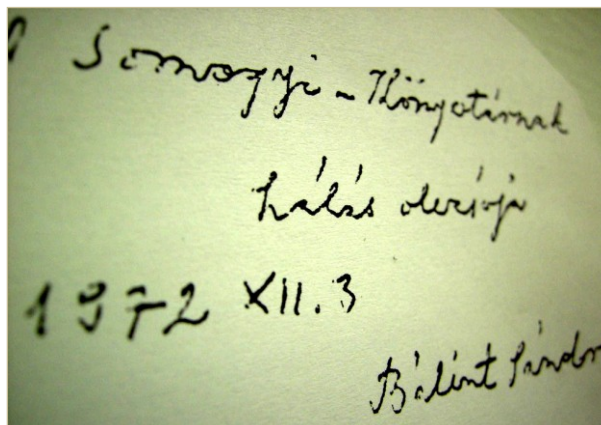 A Somogyi-Könyvtárnak
hálás olvasója
1972 XII. 3
Bálint Sándor